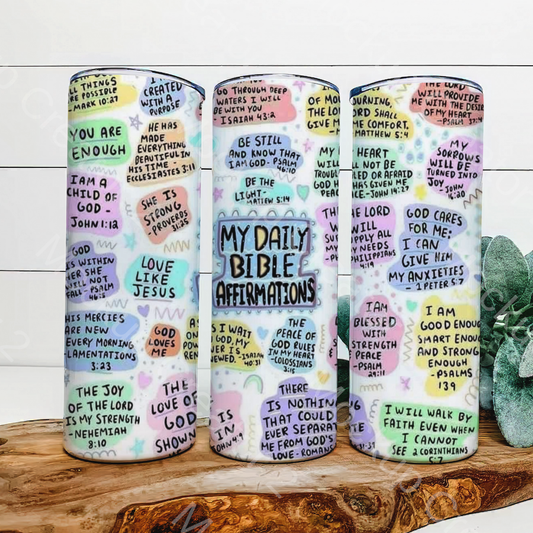 ALL THINGS
ARE POSSIBLE
-MARK 10:27
CREATED
WITH A
PURPOSE
YOU ARE
ENOUGH
HE HAS
MADE
EVERYTHING
BEAUTIFUL IN
HIS TIME -
ECCLESIASTES 3:11
I AM A
CHILD OF
GOD -
JOHN 1:12
SHE IS
STRONG
-PROVERBS
31:25
GOD
IS WITHIN
HER SHE
WILL NOT
FALL -PSALM
46:5
LOVE
LIKE
JESUS
HIS MERCIES
ARE NEW
EVERY MORNING
-LAMENTATIONS
3:23
GOD
LOVES
ME
THE JOY
OF THE LORD
IS MY STRENGTH
-NEHEMIAH
8:10
THE
LOVE OF
GOD
SHOWN
GO THROUGH DEEP
WATERS I WILL
BE WITH YOU
ISAIAH 43:2
OF MO
THE LOR
GIVE M
BE STILL
AND KNOW THAT
I AM GOD -PSALM
46:10
BE THE
LIGHT-
MATTEW 5:14
MY
WILL
TROUBL
GOD H
PEACE
MY DAILY
BIBLE
AFFIRMATIONS
THE
WILL
SUP
MY N
PH
AS I WAIT
GOD, MY
POWER IS
RENEWED. -ISAIAH
40:31
THE
PEACE OF
GOD RULES
IN MY HEART
-COLOSSIANS
3:16
THERE
IS NOTHIN
THAT COUL
EVER SEPARAT
ME FROM GOD'S
LOVE -ROMANS
IS
IN
JOHN 4:9
MOURNING,
LORD SHALL
ME COMFORT,
MATTHEW 5:4
THE LORD
WILL PROVIDE
ME WITH THE DESIRE
OF MY HEART
-PSALM
HEART
LL NOT BE
LED OR AFRAID
HAS GIVEN ME
CE -JOHN 14:27
MY
SORROWS
WILL BE
TURNED INTO
JOY
-JOHN
16:20
THE LORD
WILL
SUPPLY ALL
MY NEEDS
PHILIPPIANS
4:19
GOD CARES
FOR ME;
I CAN
GIVE HIM
MY ANXIETIES
- 1 PETER 5:7
I AM
BLESSED
WITH
STRENGTH
PEACE
-PSALM
29:11
I AM
GOOD ENOUGH
SMART ENOUGH
AND STRONG
ENOUGH
-PSALMS
139
I WILL WALK BY
FAITH EVEN WHEN
I CANNOT
SEE 2 CORINTHIANS
5:7